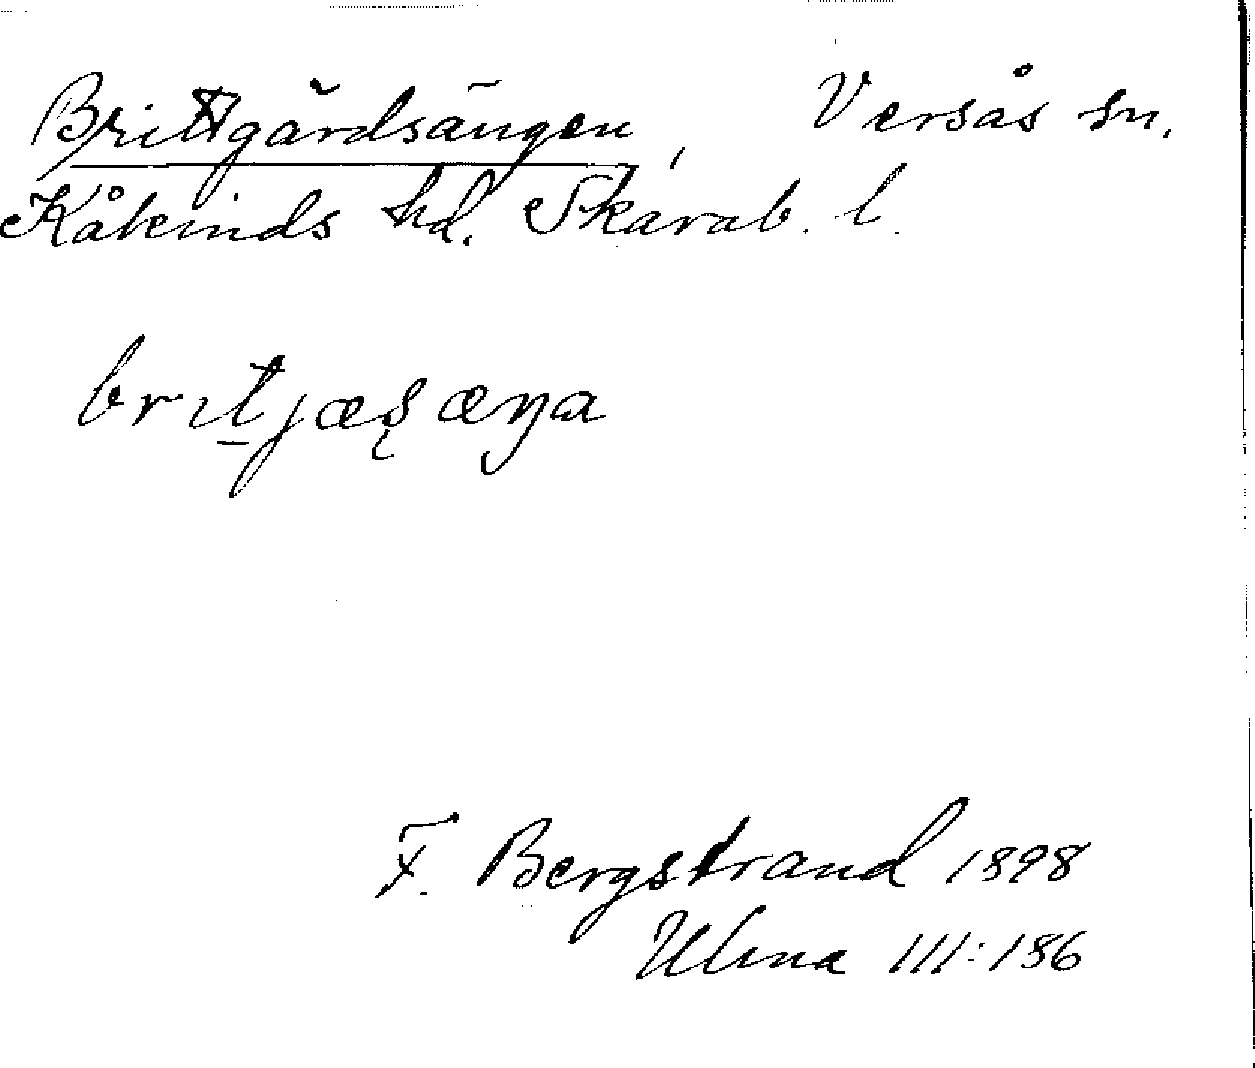 Brittgårdsängen, Versås sn.
Kåkinds hd. Skarab. l.
britjæsæŋa
F. Bergstrand 1898
Ulma III:186